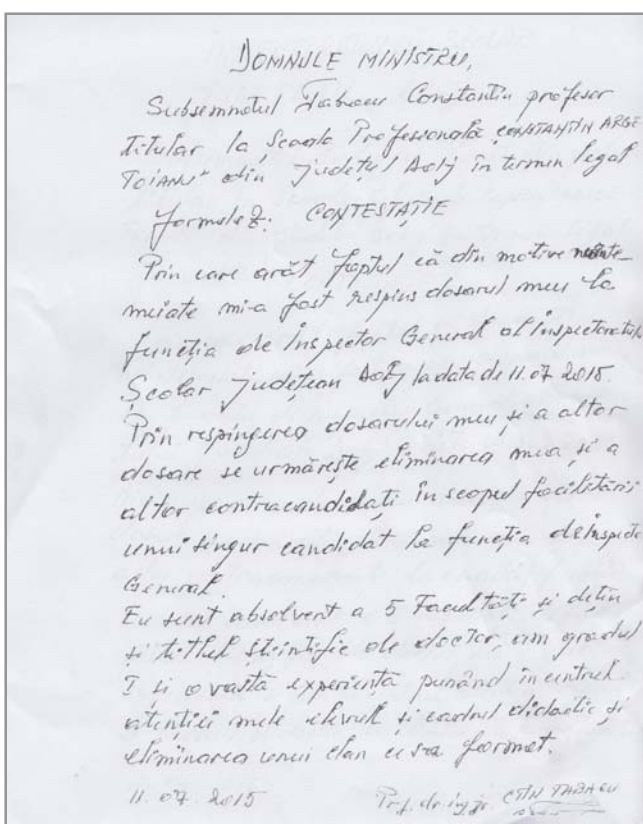 DOMNULE MINISTRU,
Subsemnatul Tabacu Constantin profesor
titular la Școala Profesională „CONSTANTIN ARGE
TOIANU” din județul Dolj în termen legal
formulez: CONTESTAȚIE
Prin care arăt faptul că din motive neînte_
meiate mi-a fost respins dosarul meu la
funcția de Inspector General al Inspectoratului
Școlar Județean Dolj la data de 11.07.2015.
Prin respingerea dosarului meu și a altor
dosare se urmărește eliminarea mea și a
altor contracandidați în scopul facilitării
unui singur candidat la funcția de Inspector
General.
Eu sunt absolvent a 5 Facultăți și dețin
și titlul științific de doctor, am gradul
I și o vastă experiență punând în centrul
atenției mele elevul și cadrul didactic și
eliminarea unui clan ce s-a format.
11.07.2015 Prof. dr. ing. jr. CTIN TABACU